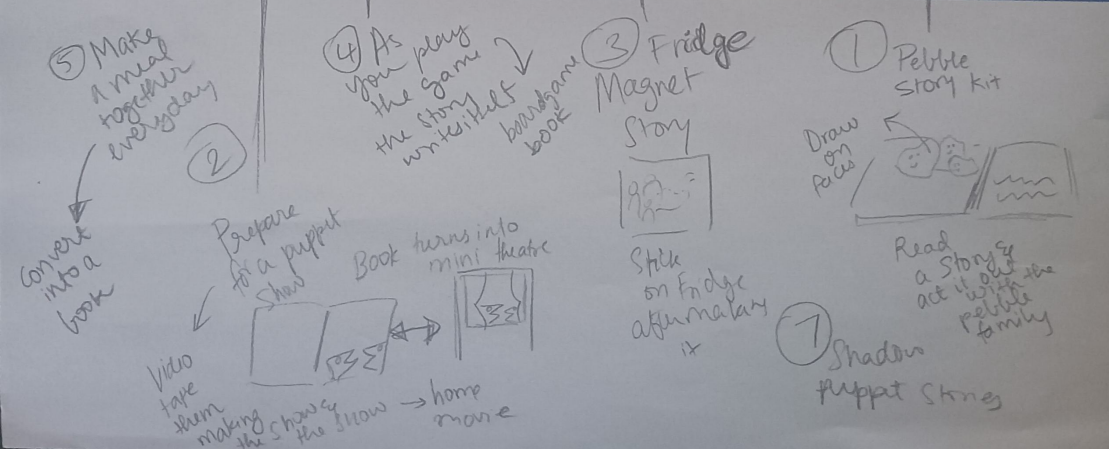 ⑤ Make
a meal
together
everyday
Convert
into a
book
②
Prepare
for a puppet
Show
Video
tape
them
making
the show &
the show → home
movie
Book turns into
mini theatre
④ As
you play
the game
the story
writes itself
boardgame
book
③ Fridge
Magnet
Story
Stick
on Fridge
after making
it
① Pebble
Story Kit
Draw
on
faces
Read
a story &
act it out
with the
pebble
family
⑦ Shadow
puppet stories